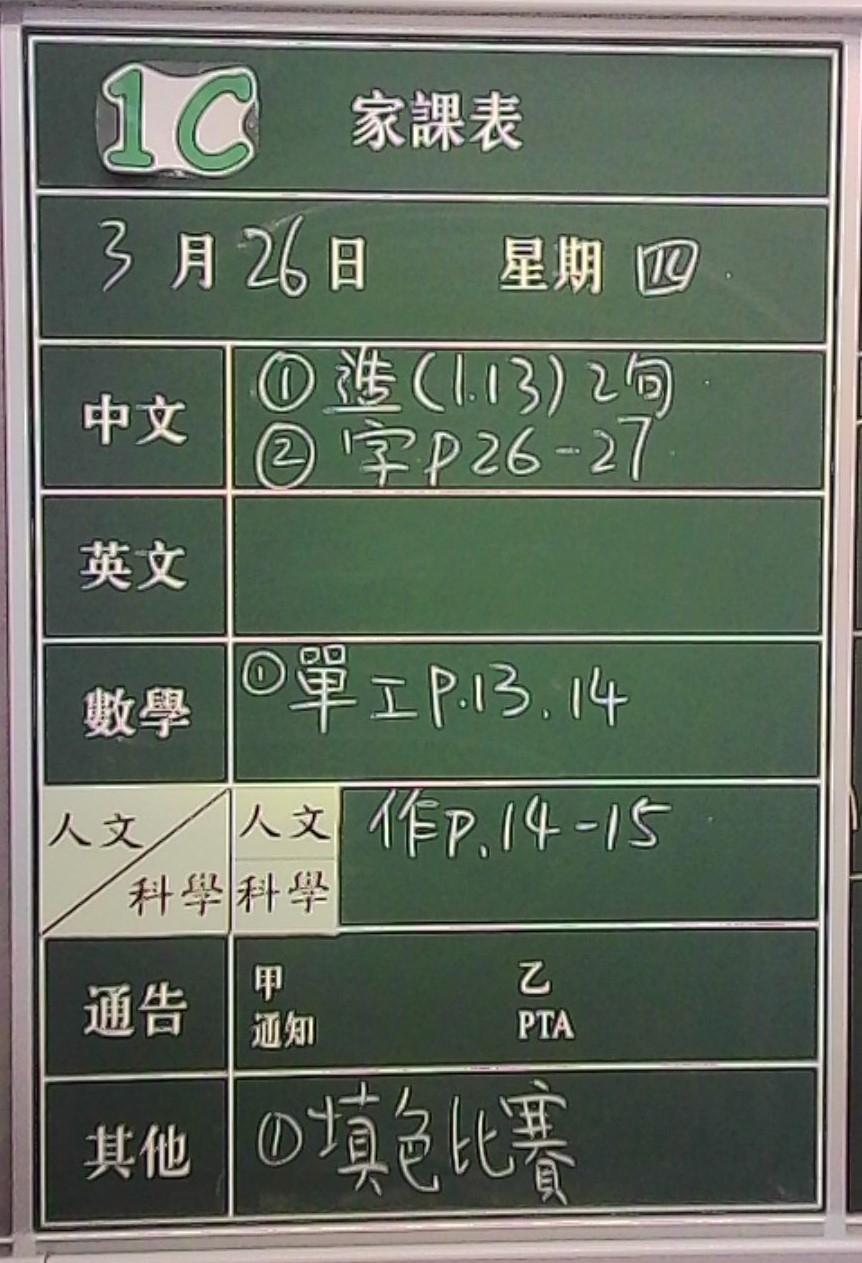 1C 家課表
3月26日 星期四
中文
① 造(1.13)2句
② 字p26-27
英文
數學
① 單工P.13.14
人文/科學
人文
作p.14-15
科學
通告
甲 乙
通知 PTA
其他
① 填色比賽